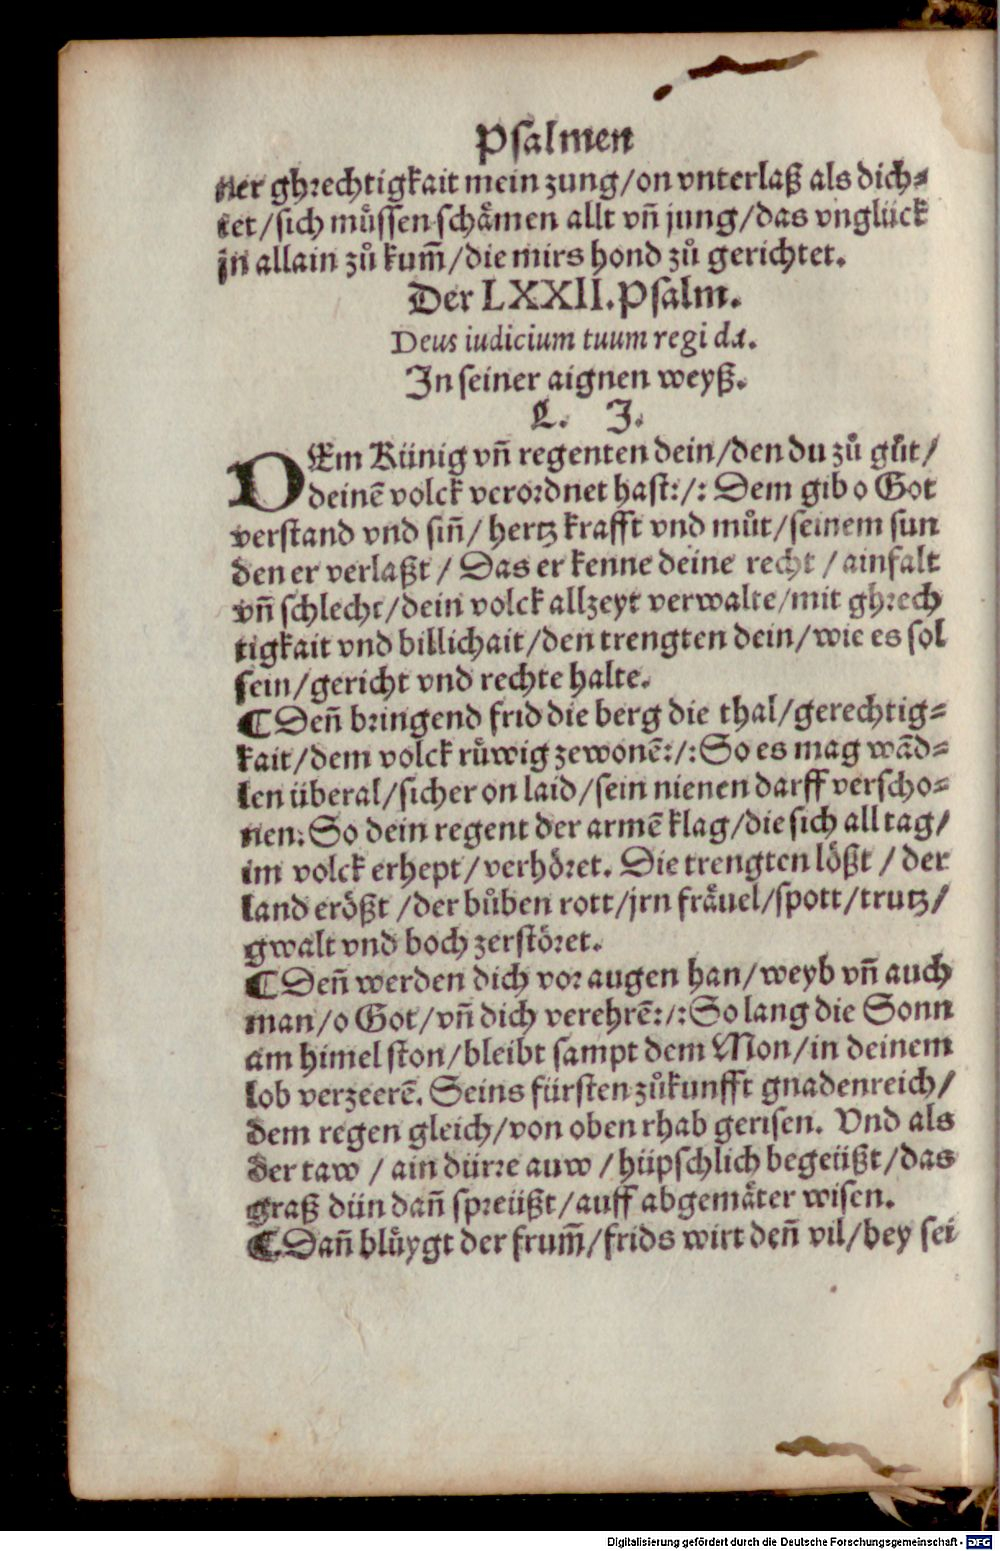 Psalmen
ner ghrechtigkait mein zung/on vnterlaß als dich⸗
tet/sich muͤssen schaͤmen allt vñ jung/das vnglück
jn allain zuͦ kum̃/die mirs hond zuͦ gerichtet.
Der LXXII. Psalm.
Deus iudicium tuum regi da.
In seiner aignen weyß.
L. J.
DEm Künig vñ regenten dein/den du zuͦ guͦt/
deinē volck verordnet hast:/: Dem gib o Got
verstand vnd siñ/ hertz krafft vnd muͦt/seinem sun
den er verlaßt / Das er kenne deine recht / ainfalt
vñ schlecht/dein volck allzeyt verwalte/mit ghrech
tigkait vnd billichait/den trengten dein/wie es sol
sein/gericht vnd rechte halte.
¶ Deñ bringend frid die berg die thal/gerechtig⸗
kait/dem volck ruͤwig zewonē:/:So es mag wād⸗
len überal/sicher on laid/sein nienen darff verscho⸗
nen. So dein regent der armē klag/die sich all tag/
im volck erhept/verhoͤret. Die trengten loͤßt / der
land eroͤßt /der buͦben rott/jrn fraͤuel/spott/trutz/
gwalt vnd boch zerstoͤret.
¶ Deñ werden dich vor augen han/weyb vñ auch
man/o Got/vñ dich verehrē:/:So lang die Sonn
am himel ston/bleibt sampt dem Mon/in deinem
lob verzeerē. Seins fürsten zuͦkunfft gnadenreich/
dem regen gleich/von oben rhab gerisen. Vnd als
der taw / ain dürre auw / hüpschlich begeüßt/das
graß dün dañ spreüßt/auff abgemaͤter wisen.
¶ Dañ bluͤygt der frum̃/frids wirt deñ vil/bey sei
Digitalisierung gefördert durch die Deutsche Forschungsgemeinschaft - DFG